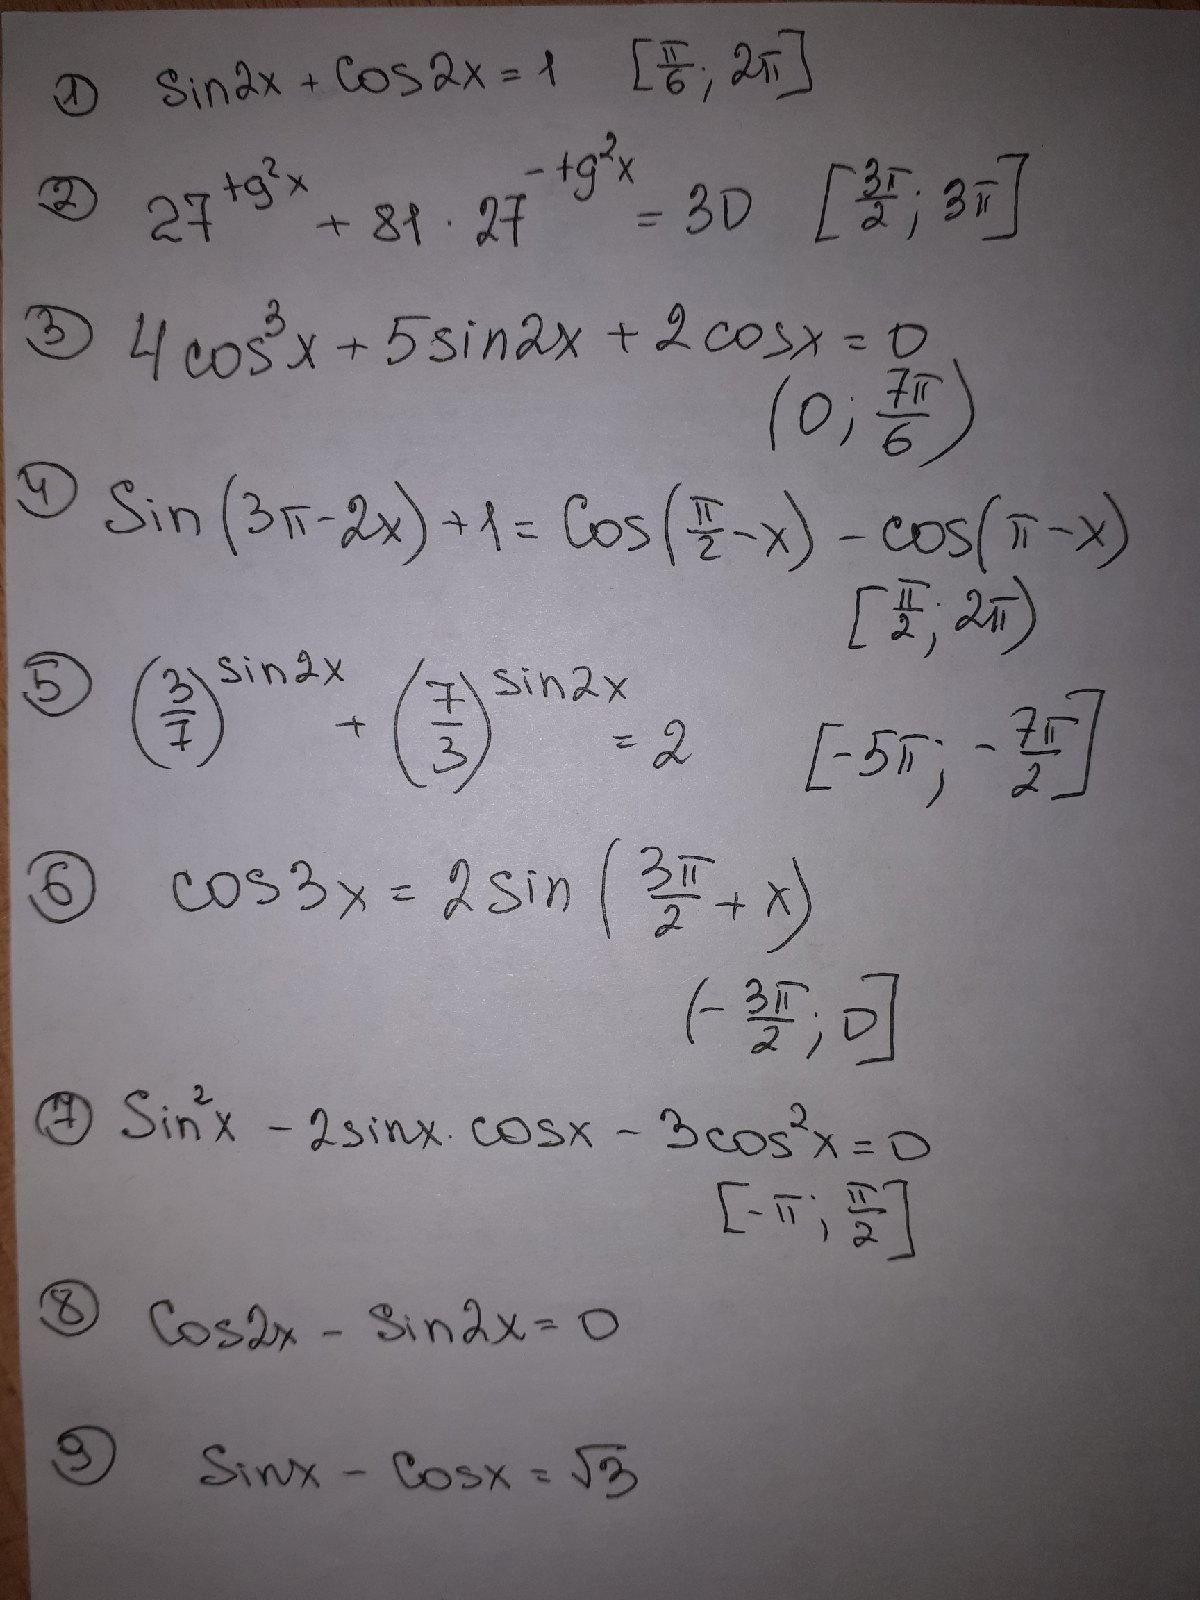 ① Sin2x + Cos2x = 1 [π/6; 2π]
② 27^(tg²x) + 81 · 27^(-tg²x) = 30 [3π/2; 3π]
③ 4cos³x + 5sin2x + 2cosx = 0
(0; 7π/6)
④ Sin(3π-2x)+1 = Cos(π/2-x) - cos(π-x)
[π/2; 2π)
⑤ (3/7)^(sin2x) + (7/3)^(sin2x) = 2 [-5π; -7π/2]
⑥ cos3x = 2sin(3π/2 + x)
(-3π/2; 0]
⑦ Sin²x - 2sinx · cosx - 3cos²x = 0
[-π; π/2]
⑧ Cos2x - Sin2x = 0
⑨ Sinx - Cosx = √3